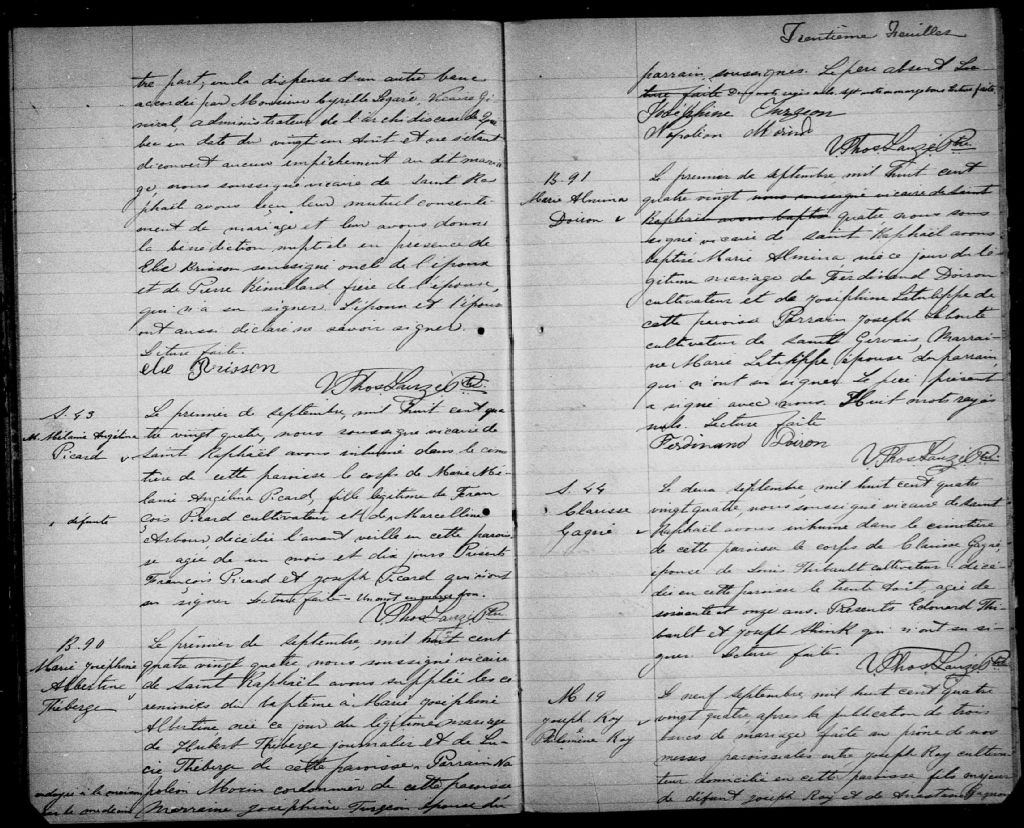 tre part, vu la dispense d'un autre banc
accordée par Monsieur Cyrille Légaré, Vicaire Gé
néral, administrateur de l'archidiocèse de Qué
bec en date du vingt un Août et ne s'étant
découvert aucun empêchement au dit maria
ge, nous soussigné vicaire de Saint Ra
phaël avons reçu leur mutuel consente
ment de mariage et leur avons donné
la bénédiction nuptiale en présence de
Elie Brisson soussigné oncle de l'époux
et de Pierre Rémillard frère de l'épouse,
qui n'a su signer. L'époux et l'épouse
ont aussi déclaré ne savoir signer.
Lecture faite.
Elie Brisson
V. Thos Lauzé Ptre
S. 43
M. Mélanie Angélina
Picard
défunte
Le premier de septembre, mil huit cent qua
tre vingt quatre, nous soussigné vicaire de
Saint Raphaël avons inhumé dans le cime
tière de cette paroisse le corps de Marie Mé
lanie Angélina Picard, fille légitime de Fran
çois Picard cultivateur et de Marcelline
Arbour décédée l'avant veille en cette parois
se agée de un mois et dix jours Présents
François Picard et Joseph Picard qui n'ont
su signer Lecture faite - Un mot en marge bon.
V. Thos Lauzé Ptre
B. 90
Marie Josephine
Albertine
Théberge
Le premier de septembre, mil huit cent
quatre vingt quatre, nous soussigné vicaire
de Saint Raphaël avons suppléé les cé
rémonies du baptême à Marie Josephine
Albertine née ce jour du légitime mariage
de Hubert Théberge journalier et de Lu
cie Théberge de cette paroisse. Parrain Na
poléon Morin cordonnier de cette paroisse
Marraine Josephine Turgeon épouse du
Trentième Feuillet
parrain soussignés. Le père absent Lec
ture faite
Joséphine Turgeon
Napoléon Morin
V. Thos Lauzé Ptre
B. 91
Marie Almina
Doiron
Le premier de septembre mil huit cent
quatre vingt nous soussigné vicaire de saint
Raphaël avons baptisé quatre nous sous
signé vicaire de saint Raphaël avons
baptisé Marie Almina née ce jour du lé
gitime mariage de Ferdinand Doiron
cultivateur et de Josephine Latulippe de
cette paroisse Parrain Joseph
cultivateur de Saint Gervais, Marrai
ne Marie Latulippe épouse du parrain,
qui n'ont su signer. Le père présent
a signé avec nous. Huit mots rayés
nuls. Lecture faite
Ferdinand Doiron
V. Thos Lauzé Ptre
S. 44
Clarisse
Gagné
Le deux septembre, mil huit cent quatre
vingt quatre, nous soussigné vicaire de saint
Raphaël avons inhumé dans le cimetière
de cette paroisse le corps de Clarisse Gagné,
épouse de Louis Thibault cultivateur décé
dée en cette paroisse le trente Août, agée de
soixante et onze ans. Présents Edouard Thi
bault et Joseph qui n'ont su si
gner Lecture faite
V. Thos Lauzé Ptre
M 19
Joseph Roy
&
Philomène Roy
Le neuf septembre, mil huit cent quatre
vingt quatre, après la publication de trois
bancs de mariage faite au prône de nos
messes paroissiales entre Joseph Roy cultiva
teur domicilié en cette paroisse fils majeur
de défunt Joseph Roy et de Anastasie